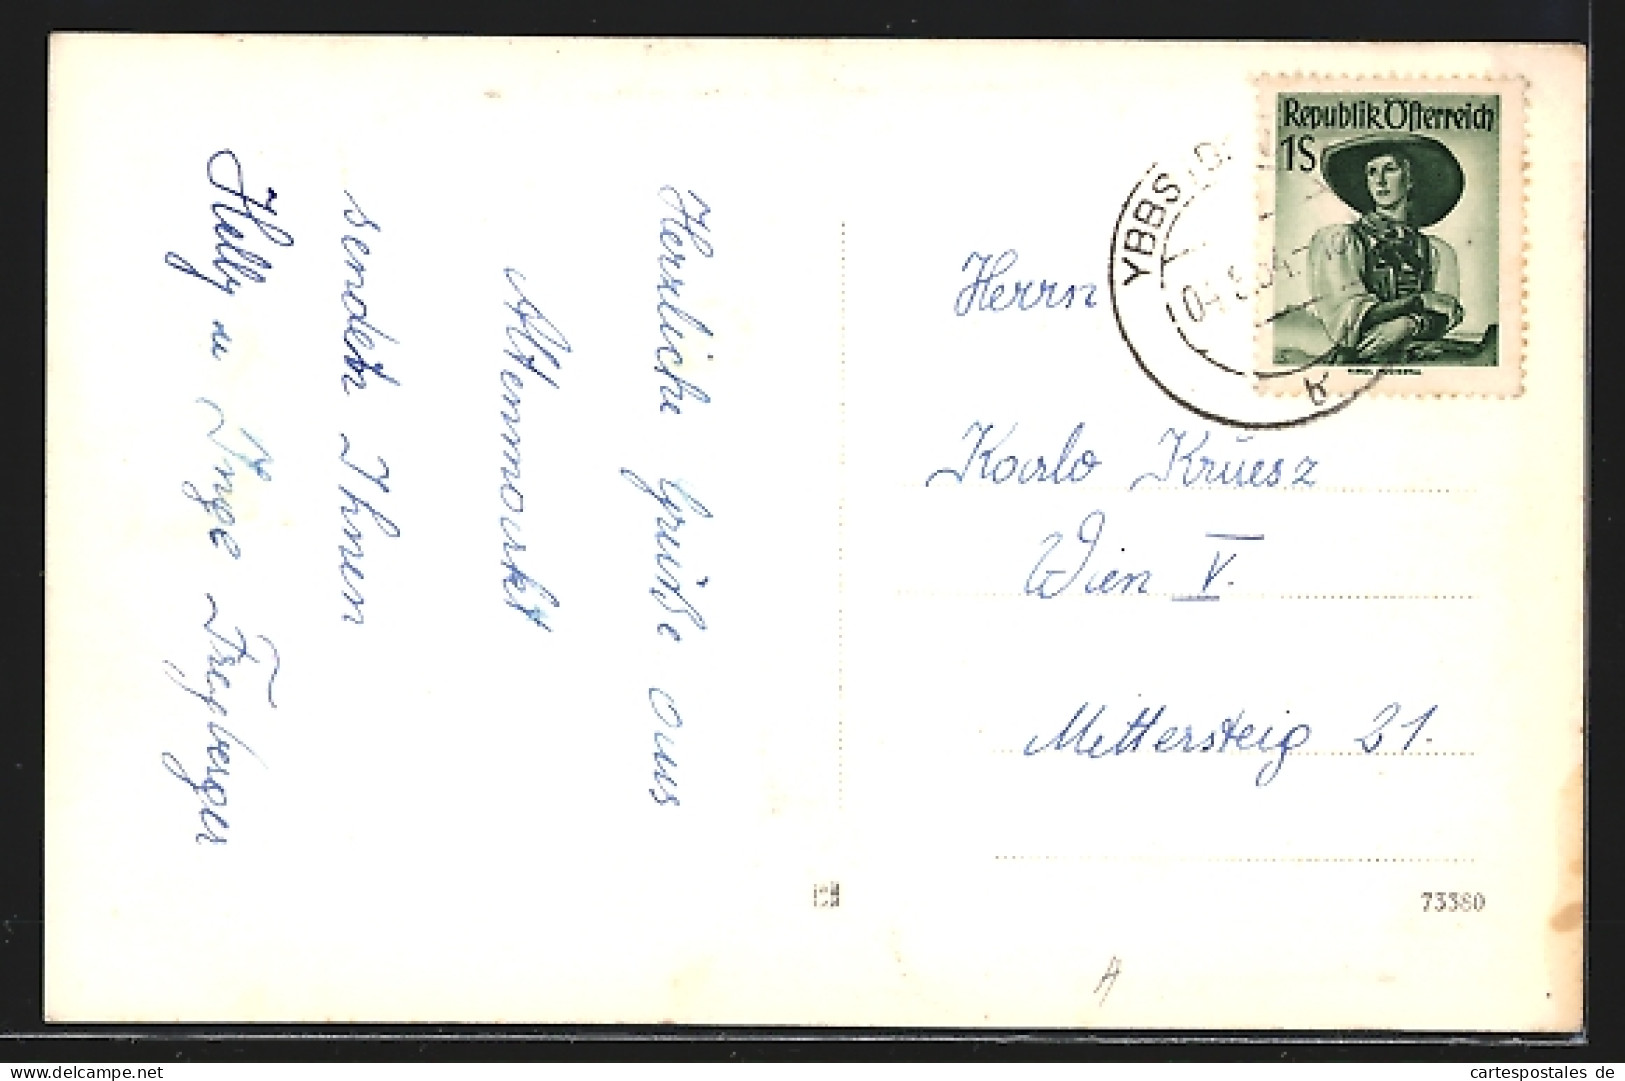 Herzliche Grüße aus
Altenmarkt
senden Ihnen
Helly u Inge Freyberger
Republik Österreich
1S
YBBS
Herrn
Karlo Kruesz
Wien V.
Mittersteig 21.
73380
A
delcampe.net
cartespostales de